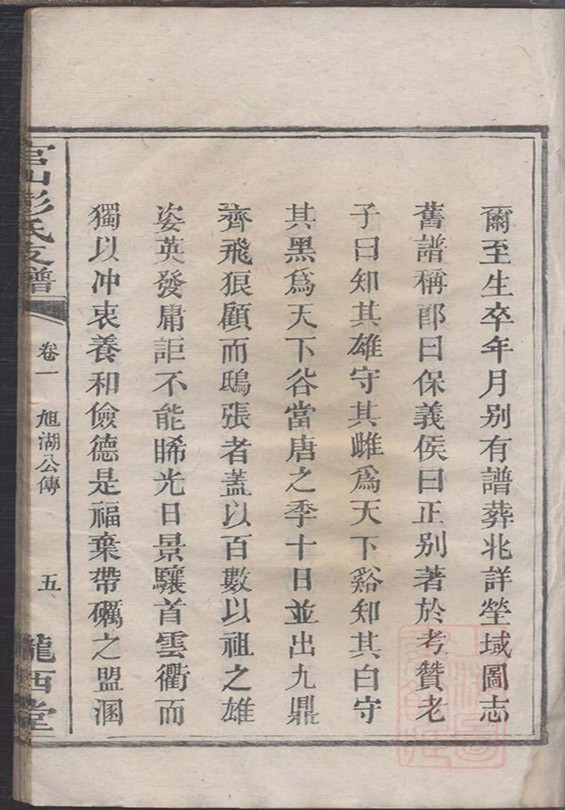 爾至生卒年月别有譜葬兆詳塋域圖志
舊譜稱郎曰保義侯曰正别著於考贊老
子曰知其雄守其雌爲天下谿知其白守
其黑爲天下谷當唐之季十日並出九鼎
齊飛狼顧而鴟張者蓋以百數以祖之雄
姿英發庸詎不能晞光日景驤首雲衢而
獨以冲衷養和儉德是福棄帶礪之盟溷
官山彭氏支譜
卷一 旭湖公傳
五
隴西堂